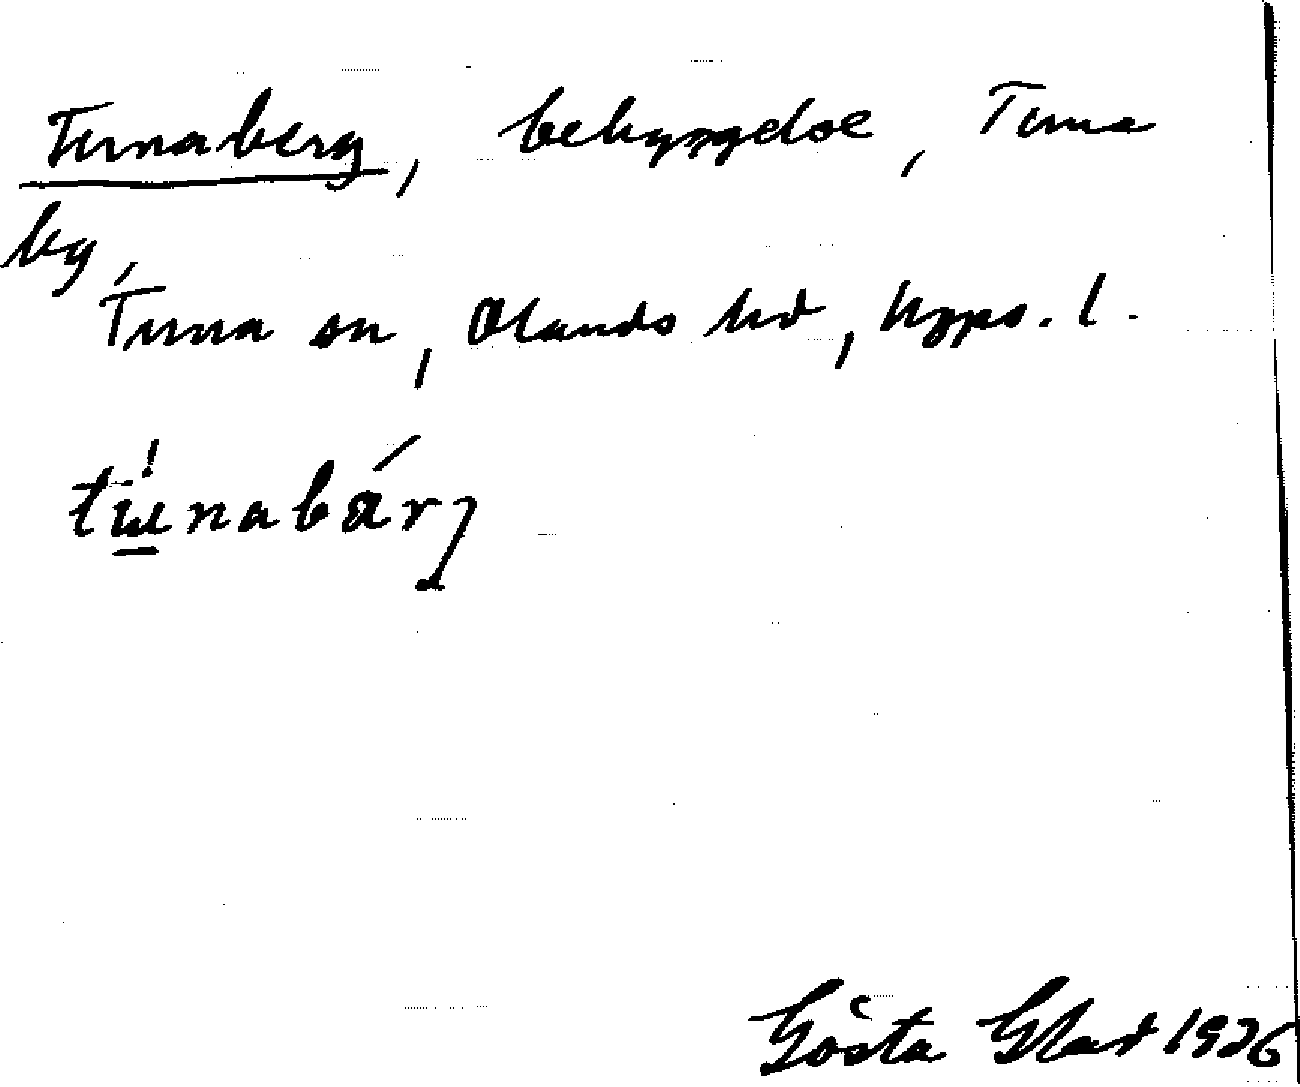 Tunaberg, bebyggelse, Tuna
by,
Tuna sn, Olands hd, Upps. l.
tu̲nabárj
Gösta Glad 1926